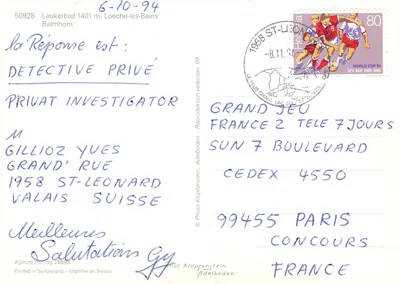 6-10-94
50928 Leukerbad 1401 m, Loèche-les-Bains
Balmhorn
la Réponse est :
DETECTIVE PRIVÉ
PRIVAT INVESTIGATOR
M
GILLIOZ YVES
GRAND' RUE
1958 ST-LEONARD
VALAIS SUISSE
Meilleures
Salutations Gy
Printed in Switzerland - Imprimé en Suisse
© Photo Klopfenstein, Adelboden
1958 ST-LEON
-8.11.94
80
HELVETIA
WORLD CUP 94
GRAND JEU
FRANCE 2 TELE 7 JOURS
SUN 7 BOULEVARD
CEDEX 4550
99455 PARIS
CONCOURS
FRANCE
Klopfenstein
Adelboden